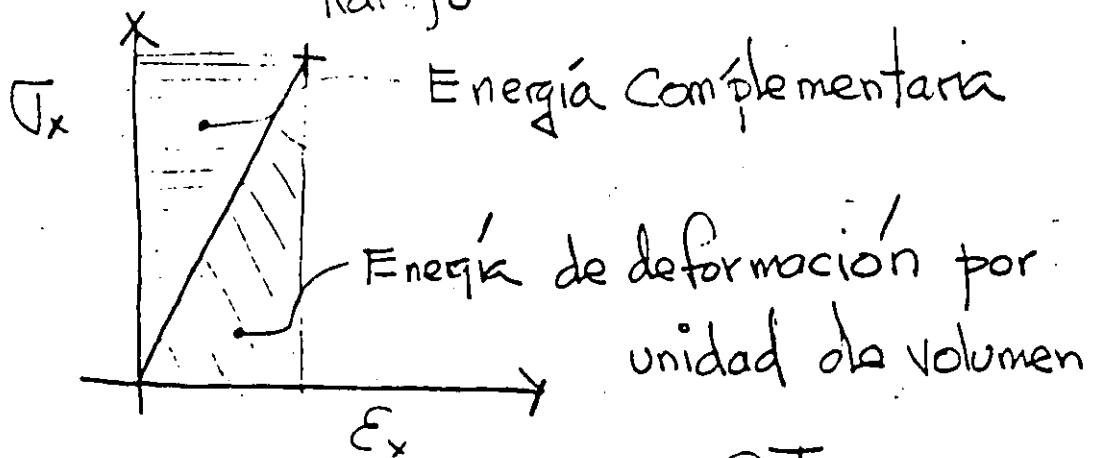 σx
Energía Complementaria
Energía de deformación por
unidad de volumen
εx